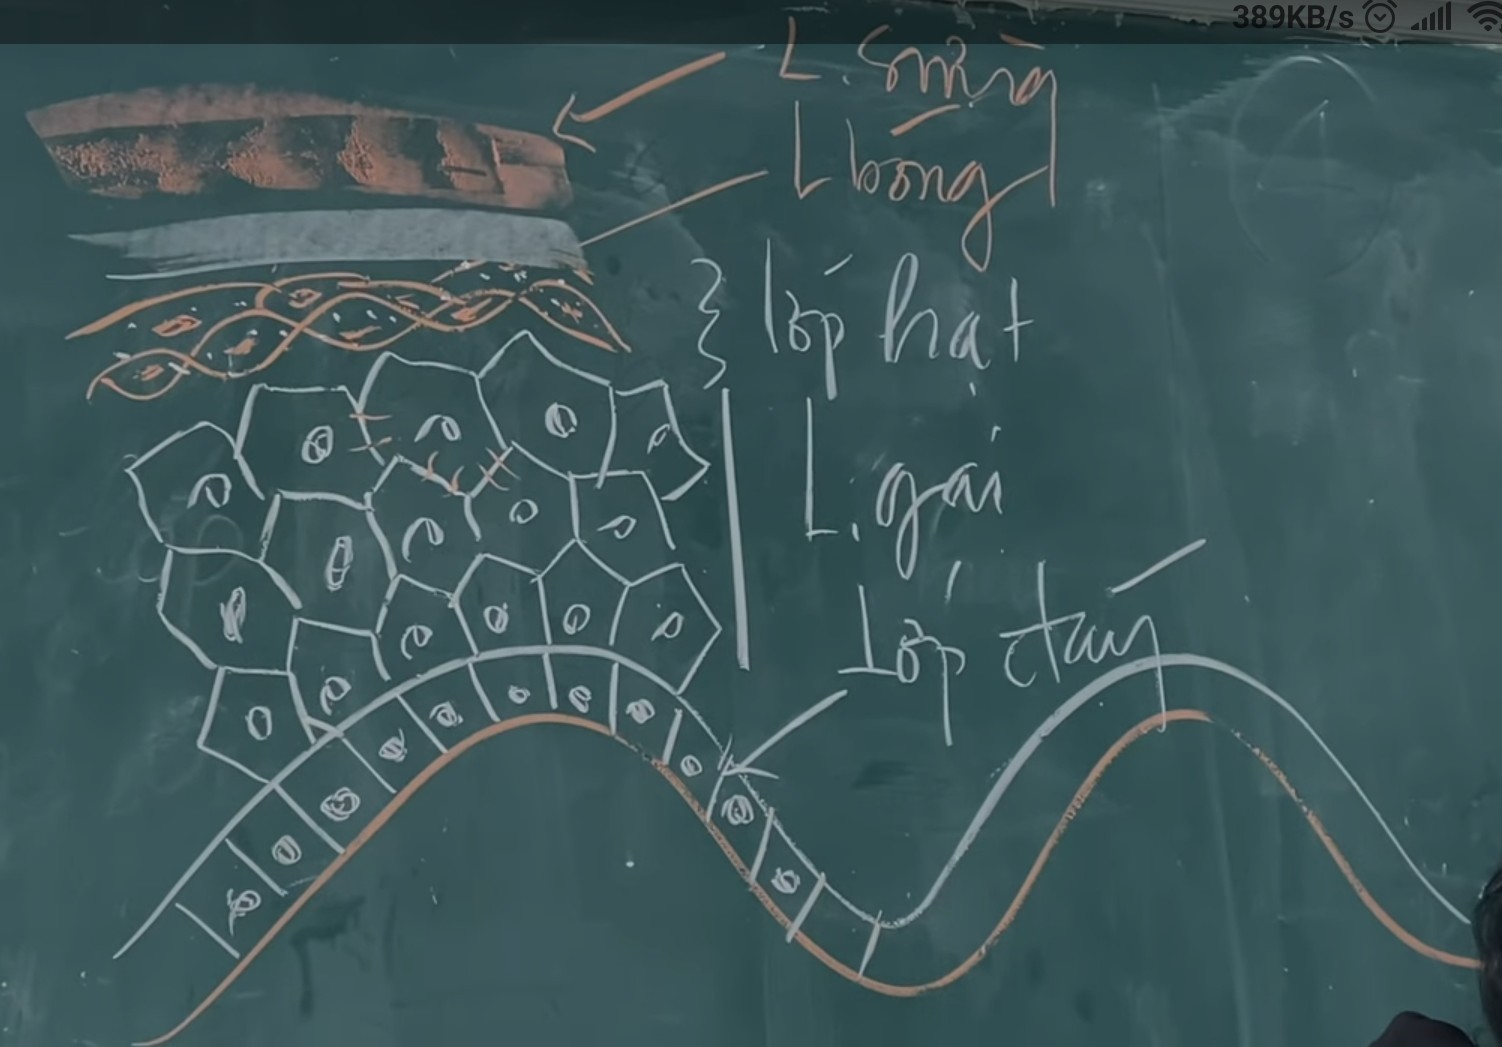 389KB/s
L. Sừng
L bóng
lớp hạt
L. gai
Lớp đáy